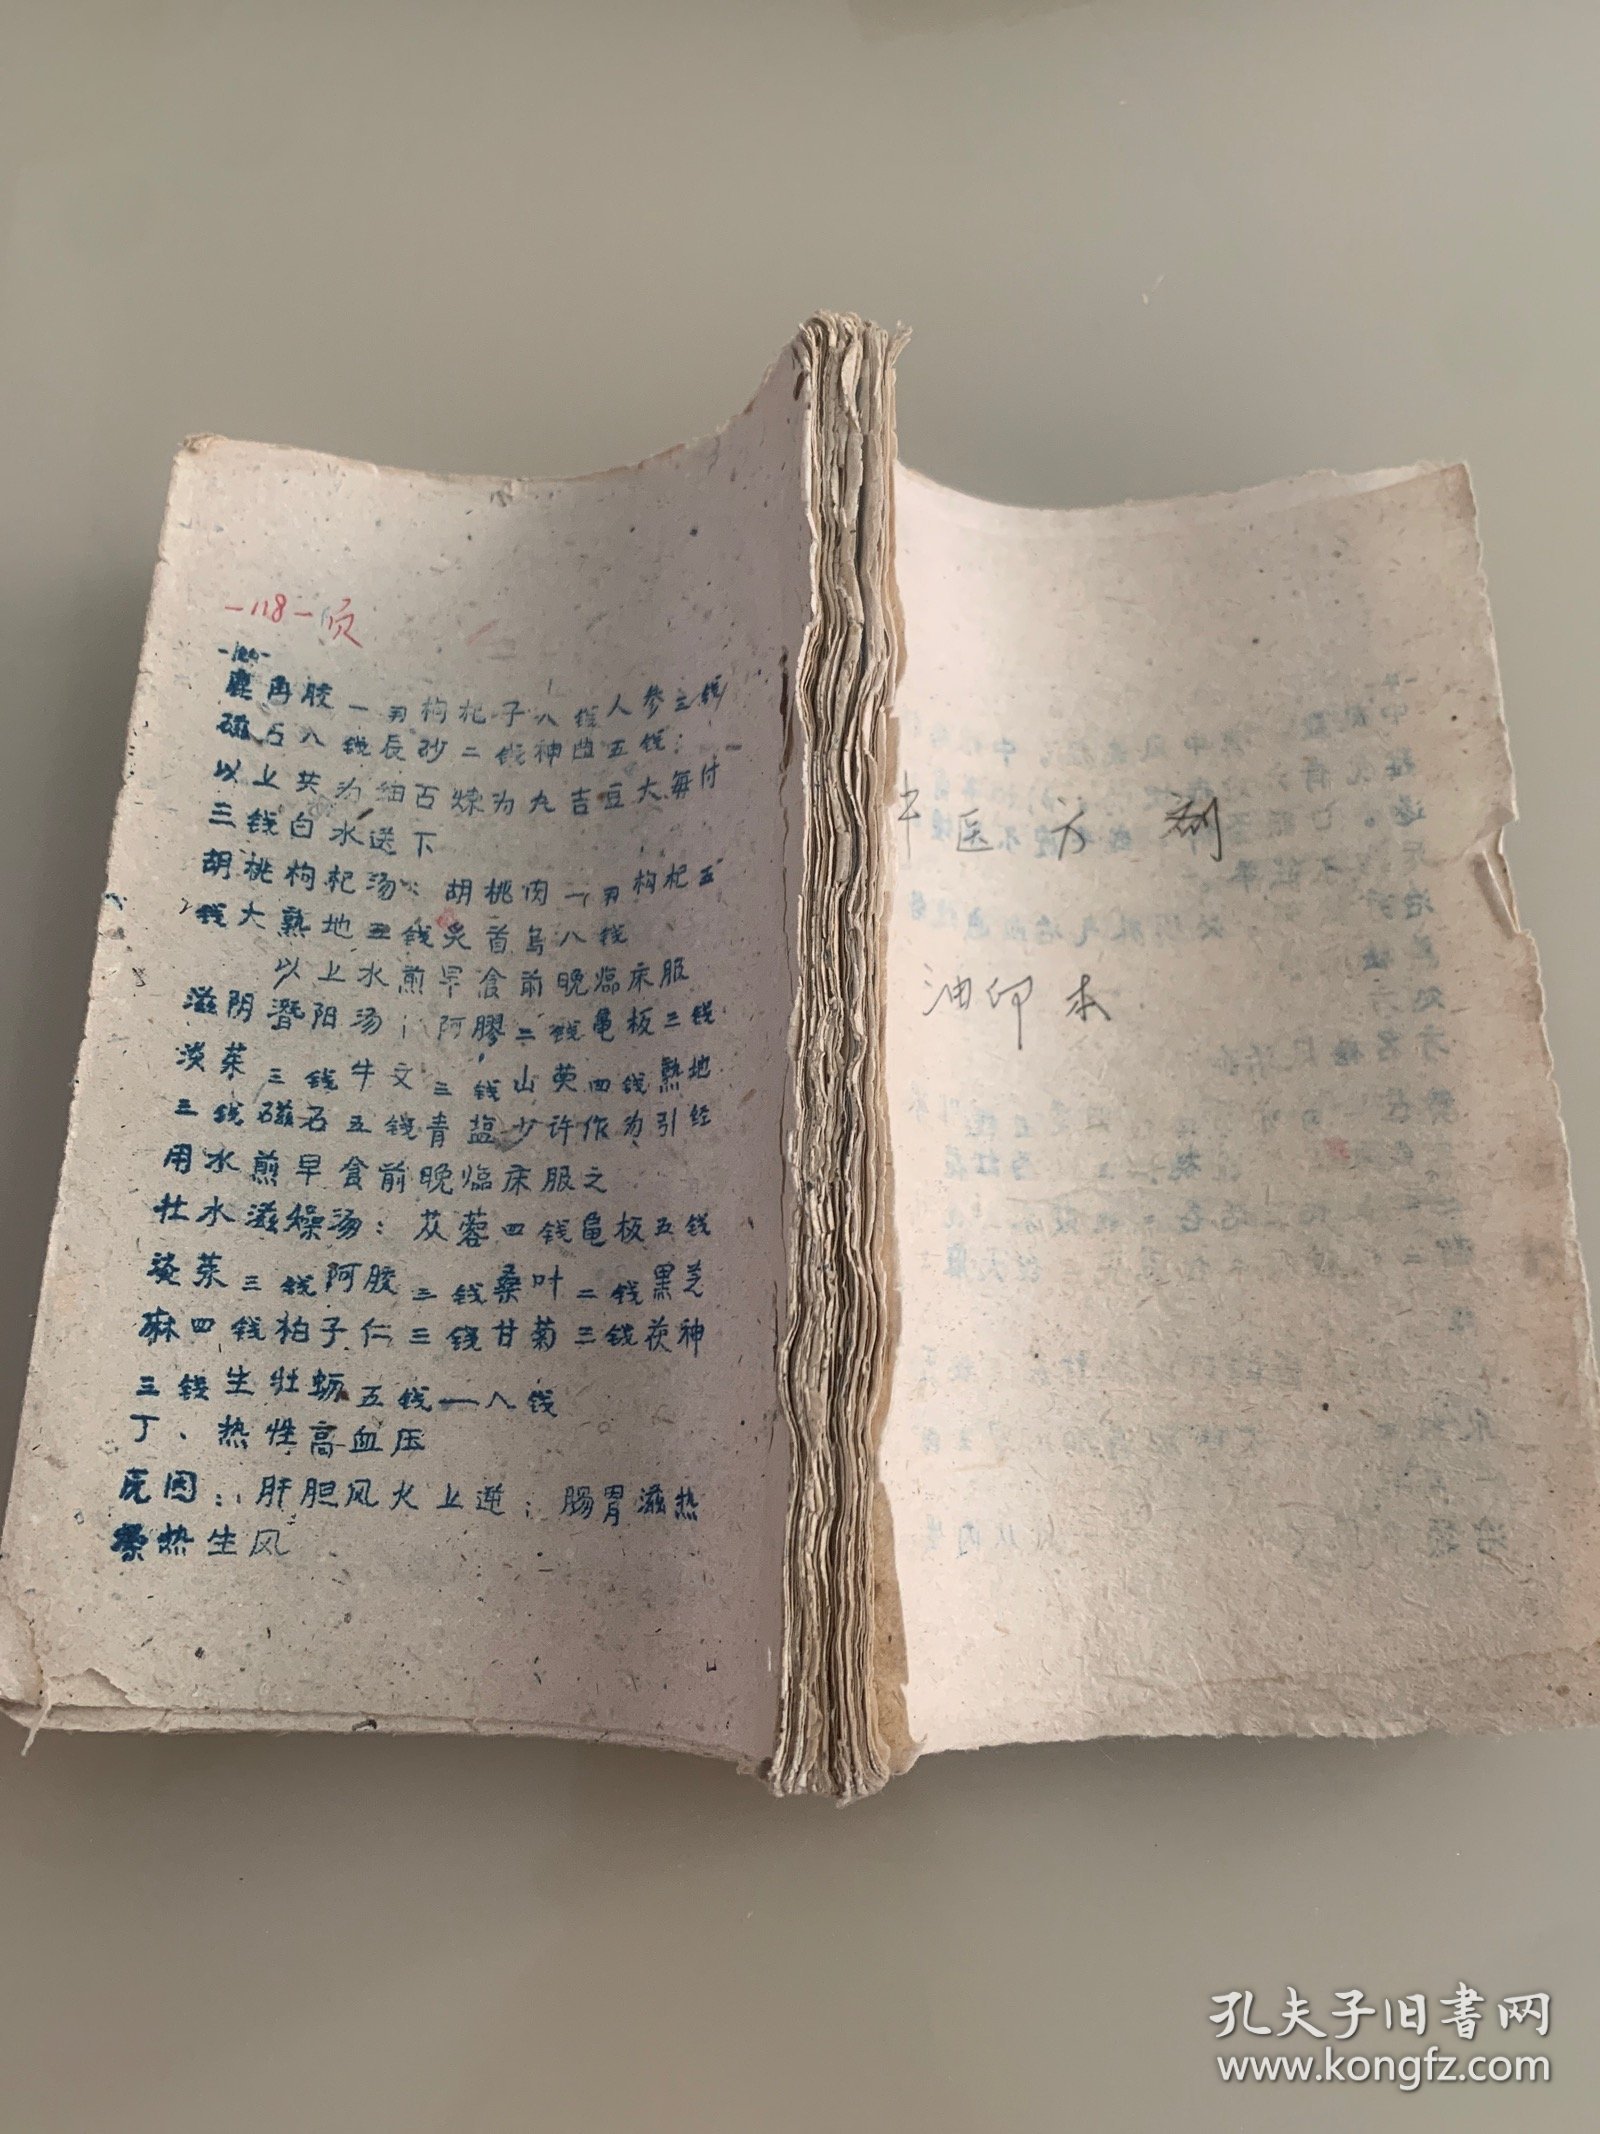 -118-页
鹿角胶一两枸杞子八钱人参三钱
磁石八钱辰砂二钱神曲五钱:
以上共为细百炼为丸吉豆大每付
三钱白水送下
胡桃枸杞汤: 胡桃肉一两枸杞五
钱大熟地五钱炙首乌八钱
以上水煎早食前晚临床服
滋阴潜阳汤: 阿膠二钱龟板三钱
淡菜三钱牛文三钱山萸四钱熟地
三钱磁石五钱青盐少许作为引经
用水煎早食前晚临床服之
壮水滋燥汤: 苁蓉四钱龟板五钱
淡菜三钱阿胶三钱桑叶二钱黑芝
麻四钱柏子仁三钱甘菊三钱茯神
三钱生牡蛎五钱——八钱
丁、热性高血压
原因: 肝胆风火上逆; 肠胃滋热
热生风
中医方剂
油印本
孔夫子旧书网
www.kongfz.com